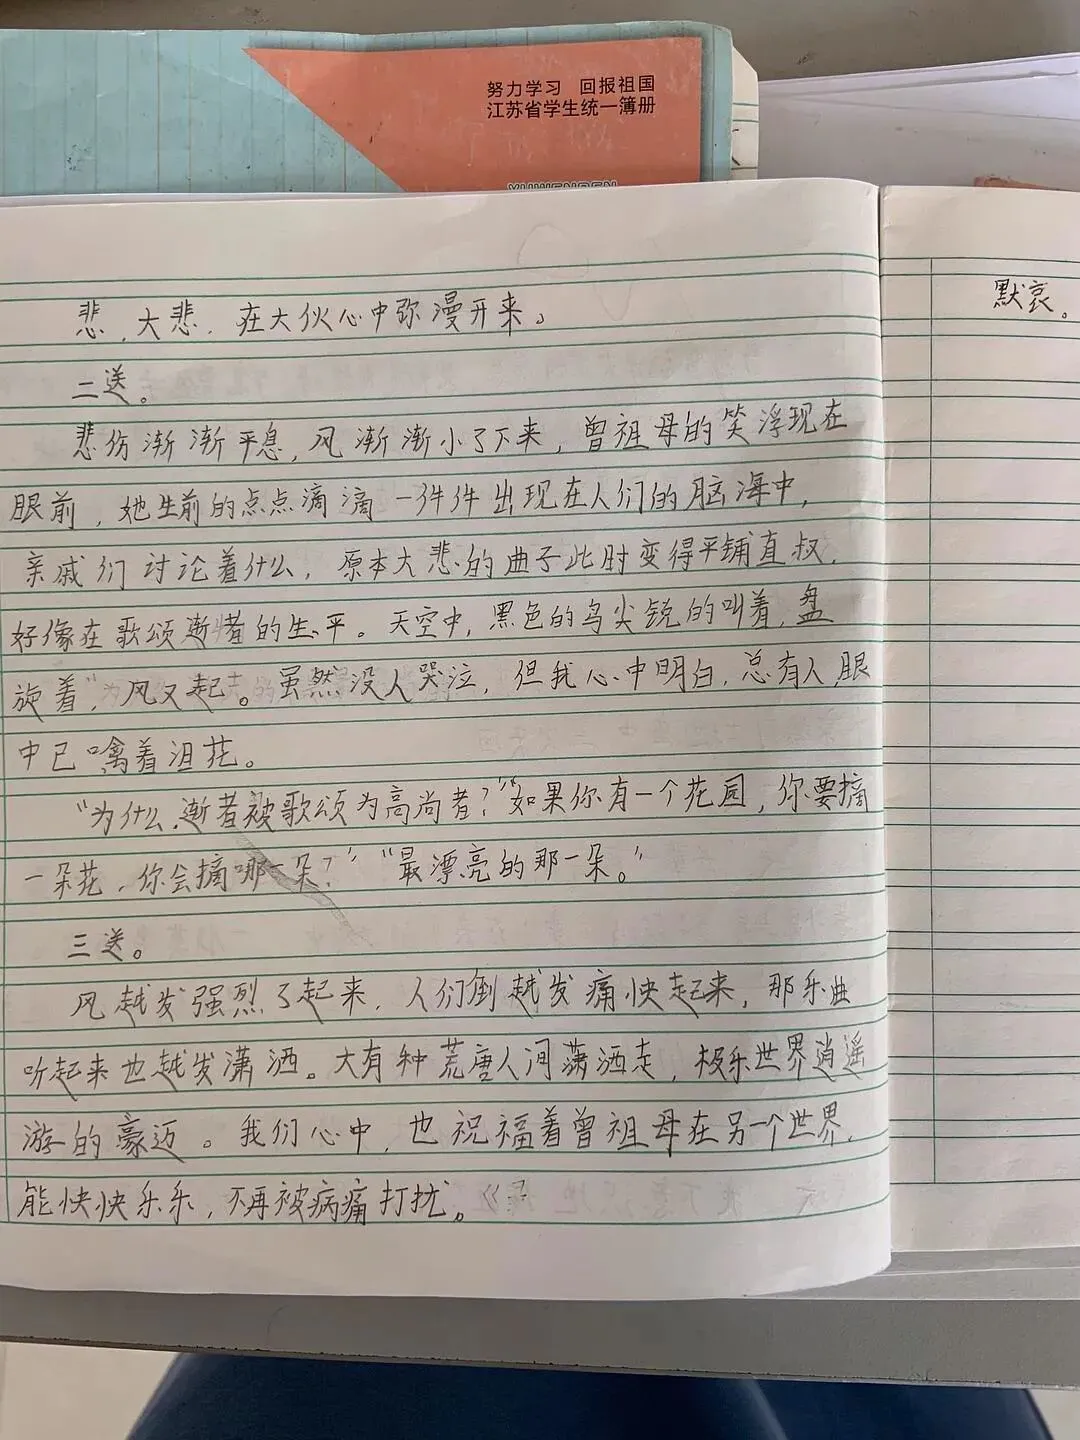 努力学习 回报祖国
江苏省学生统一簿册
YUWENBEN
悲,大悲,在大伙心中弥漫开来。
默哀。
二送。
悲伤渐渐平息,风渐渐小了下来,曾祖母的笑浮现在
眼前,她生前的点点滴滴一件件出现在人们的脑海中,
亲戚们讨论着什么,原本大悲的曲子此时变得平铺直叔,
好像在歌颂逝者的生平。天空中,黑色的鸟尖锐的叫着,盘
旋着,风又起。虽然没人哭泣,但我心中明白,总有人,眼
中已噙着泪花。
“为什么,逝者被歌颂为高尚者?”“如果你有一个花园,你要摘
一朵花,你会摘哪一朵?”“最漂亮的那一朵。”
三送。
风越发强烈了起来,人们倒越发痛快起来,那乐曲
听起来也越发潇洒。大有种荒唐人间潇洒走,极乐世界逍遥
游的豪迈。我们心中,也祝福着曾祖母在另一个世界,
能快快乐乐,不再被病痛打扰。